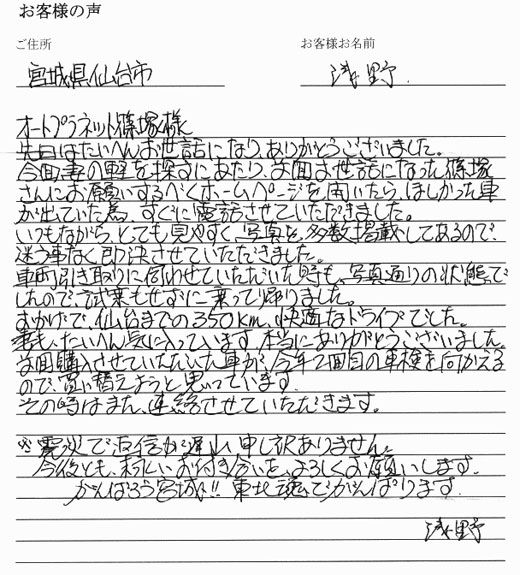 お客様の声
ご住所
お客様お名前
宮城県仙台市
浅野
オートプラネット篠塚様
先日はたいへんお世話になり、ありがとうございました。
今回妻の軽を探すにあたり、前回お世話になった篠塚
さんにお願いするべくホームページを開いたら、ほしかった車
が出ていた為、すぐに電話させていただきました。
いつもながら、とても見やすく、写真も多数掲載してあるので、
迷う事なく即決させていただきました。
車両引き取りに伺わせていただいた時も、写真通りの状態で
したので、試乗もせずに乗って帰りました。
おかげで、仙台までの350km、快適なドライブでした。
妻も、たいへん気に入っています。本当にありがとうございました。
前回購入させていただいた車が、今年2回目の車検を向かえる
ので、買い替えようと思っています。
その時はまた、連絡させていただきます。
※震災で返信が遅れ申し訳ありません。
今後とも、末永いお付き合いを、よろしくお願いします。
がんばろう宮城!! 東北魂でがんばります。
浅野